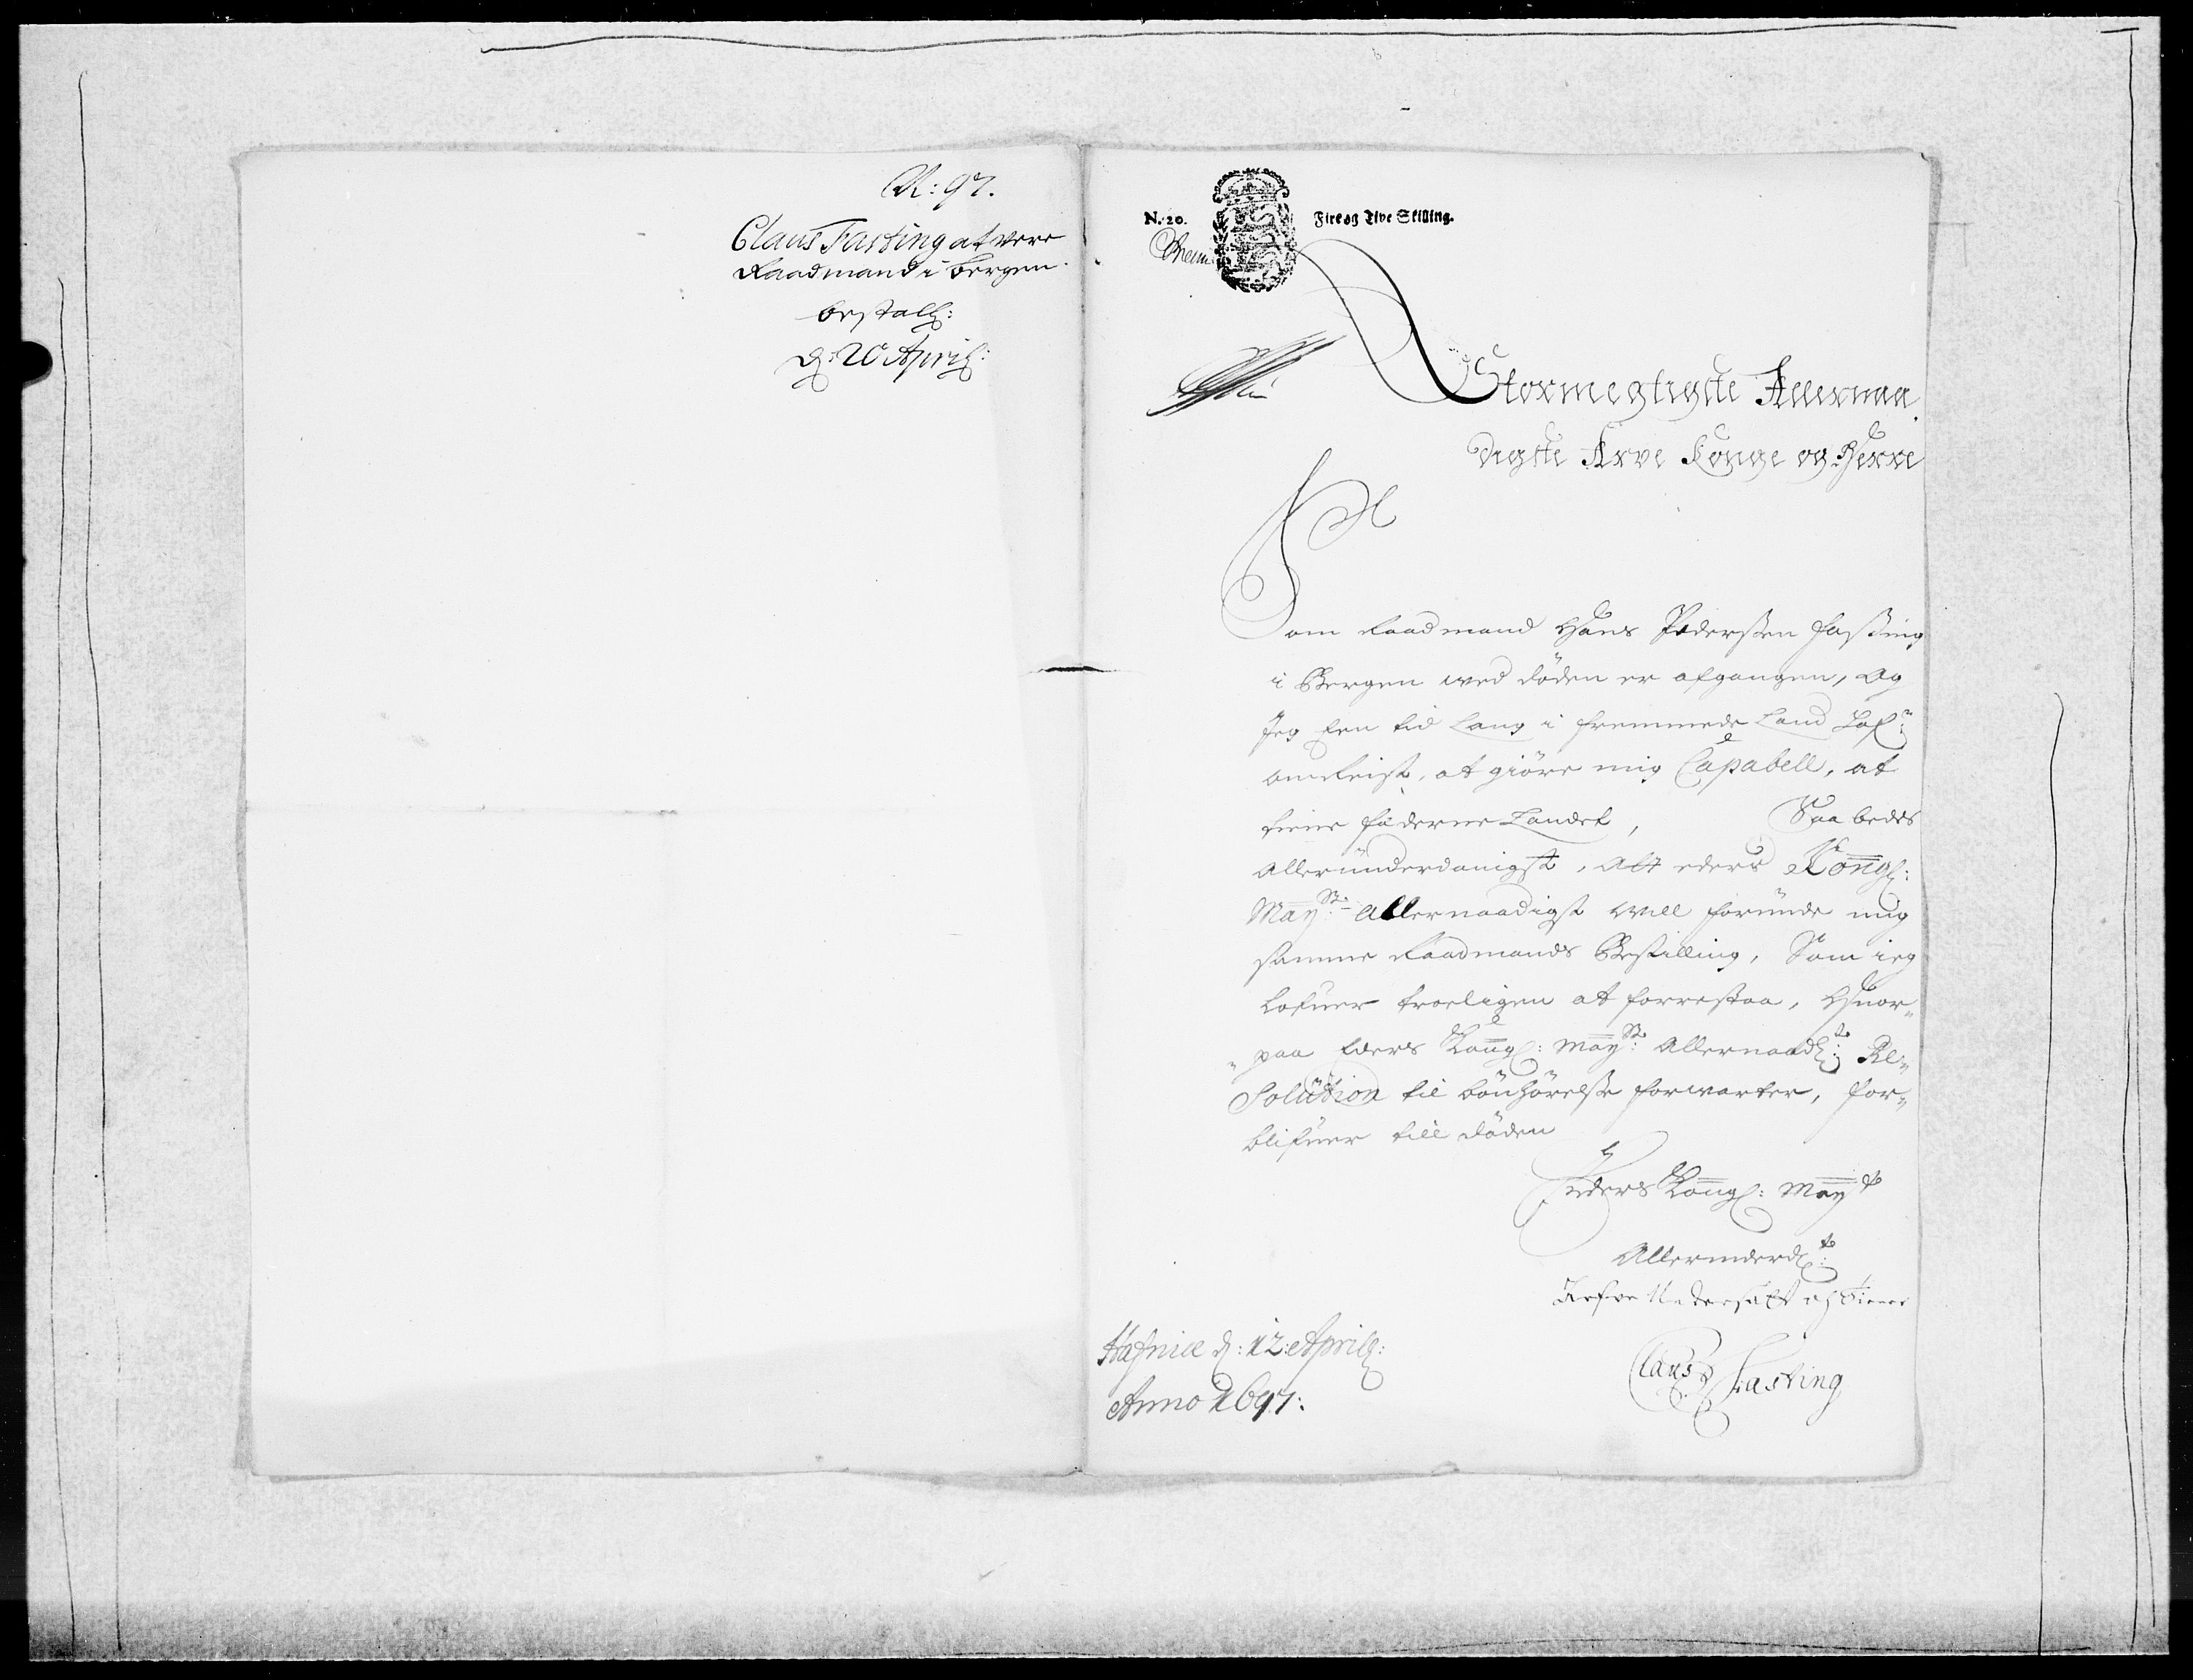 N: 97.
Claus Fasting at vere
Raadmand i Bergen
bestall:
d: 20 April:
N. 20.
Fire og Tive Skilling.
Stormegtigste Allernaa
digste Arve Konge og Herre
Som Raadmand Hans Pedersen Fasting
i Bergen ved döden er afgangen, Og
Jeg een tid lang i fremmede Land
omreist, at giöre mig Capabell, at
tiene fæderne Landet, Saa bedes
Alleründerdanigst, Att eders Kongl:
Mayst: Allernaadigst will foründe mig
samme Raadmands Bestilling, Som ieg
lofuer troeligen at forrestaa, Huor„
„paa Eders Kongl: Mayst: Allernaadste: Re„
Solution til bönhörelse forwarter, for„
blifuer till döden
Eders Kongl: Mayts
Allerunderdste:
Arfve Undersaatt og Tiener
Hafniæ d: 12: April:
Anno 1697:
Claus Fasting